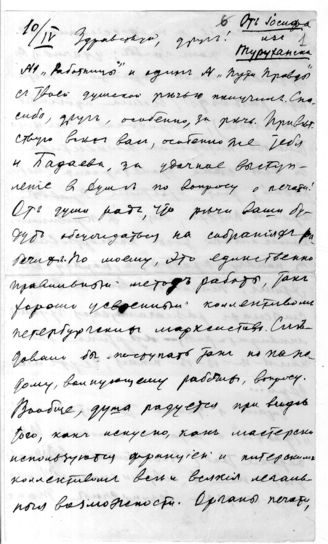 10/IV Здравствуй, друг! Отъ Іосифа
изъ
Туруханска
№ „Работницы“ и одинъ № „Пути Правды“
съ твоей думской рѣчью получилъ. Спа-
сибо, другъ, особенно, за рѣчь. Привѣт-
ствую всѣхъ васъ, особенно же тебя
и Бадаева, за удачное выступ-
леніе в думѣ по вопросу о печати!
Отъ души радъ, что рѣчи ваши бу-
дутъ обсуждаться на собраніяхъ ра-
бочихъ. По моему, это единственно
правильный методъ работы, такъ
хорошо усвоенный коллективомъ
петербургскихъ марксистовъ. Слѣ-
довало бы поступать такъ по каж-
дому, волнующему рабочихъ, вопросу.
Вообще, душа радуется при видѣ
того, какъ искусно, какъ мастерски
используются фракціей и питерскимъ
коллективомъ всѣ и всякія легаль-
ныя возможности. Органы печати,